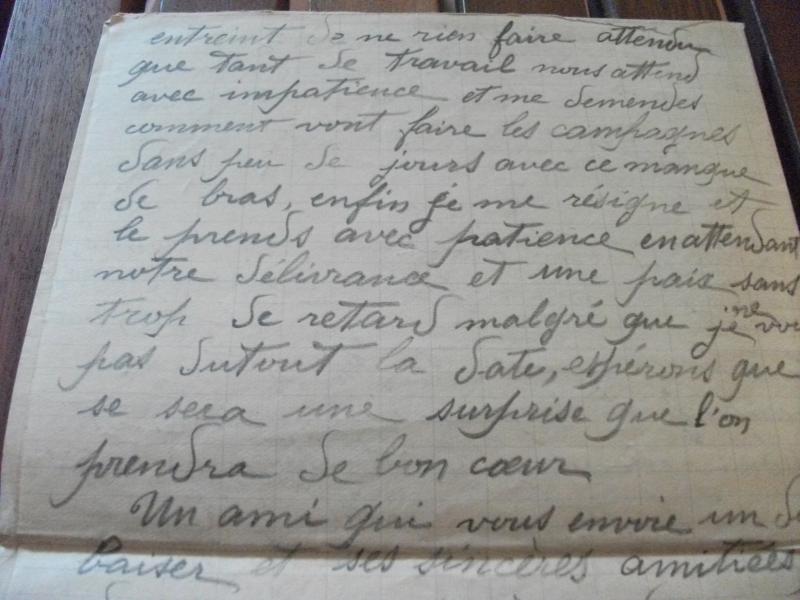 entreint de ne rien faire attendu
que tant de travail nous attend
avec impatience et me demendes
comment vont faire les campagnes
dans peu de jours avec ce manque
de bras, enfin je me résigne et
le prends avec patience en attendant
notre délivrance et une paix sans
trop de retard malgré que je ne
pas dutout la date, espérons que
se sera une surprise que l'on
prendra de bon cœur
Un ami qui vous envoie un
baiser et ses sincères amitiées